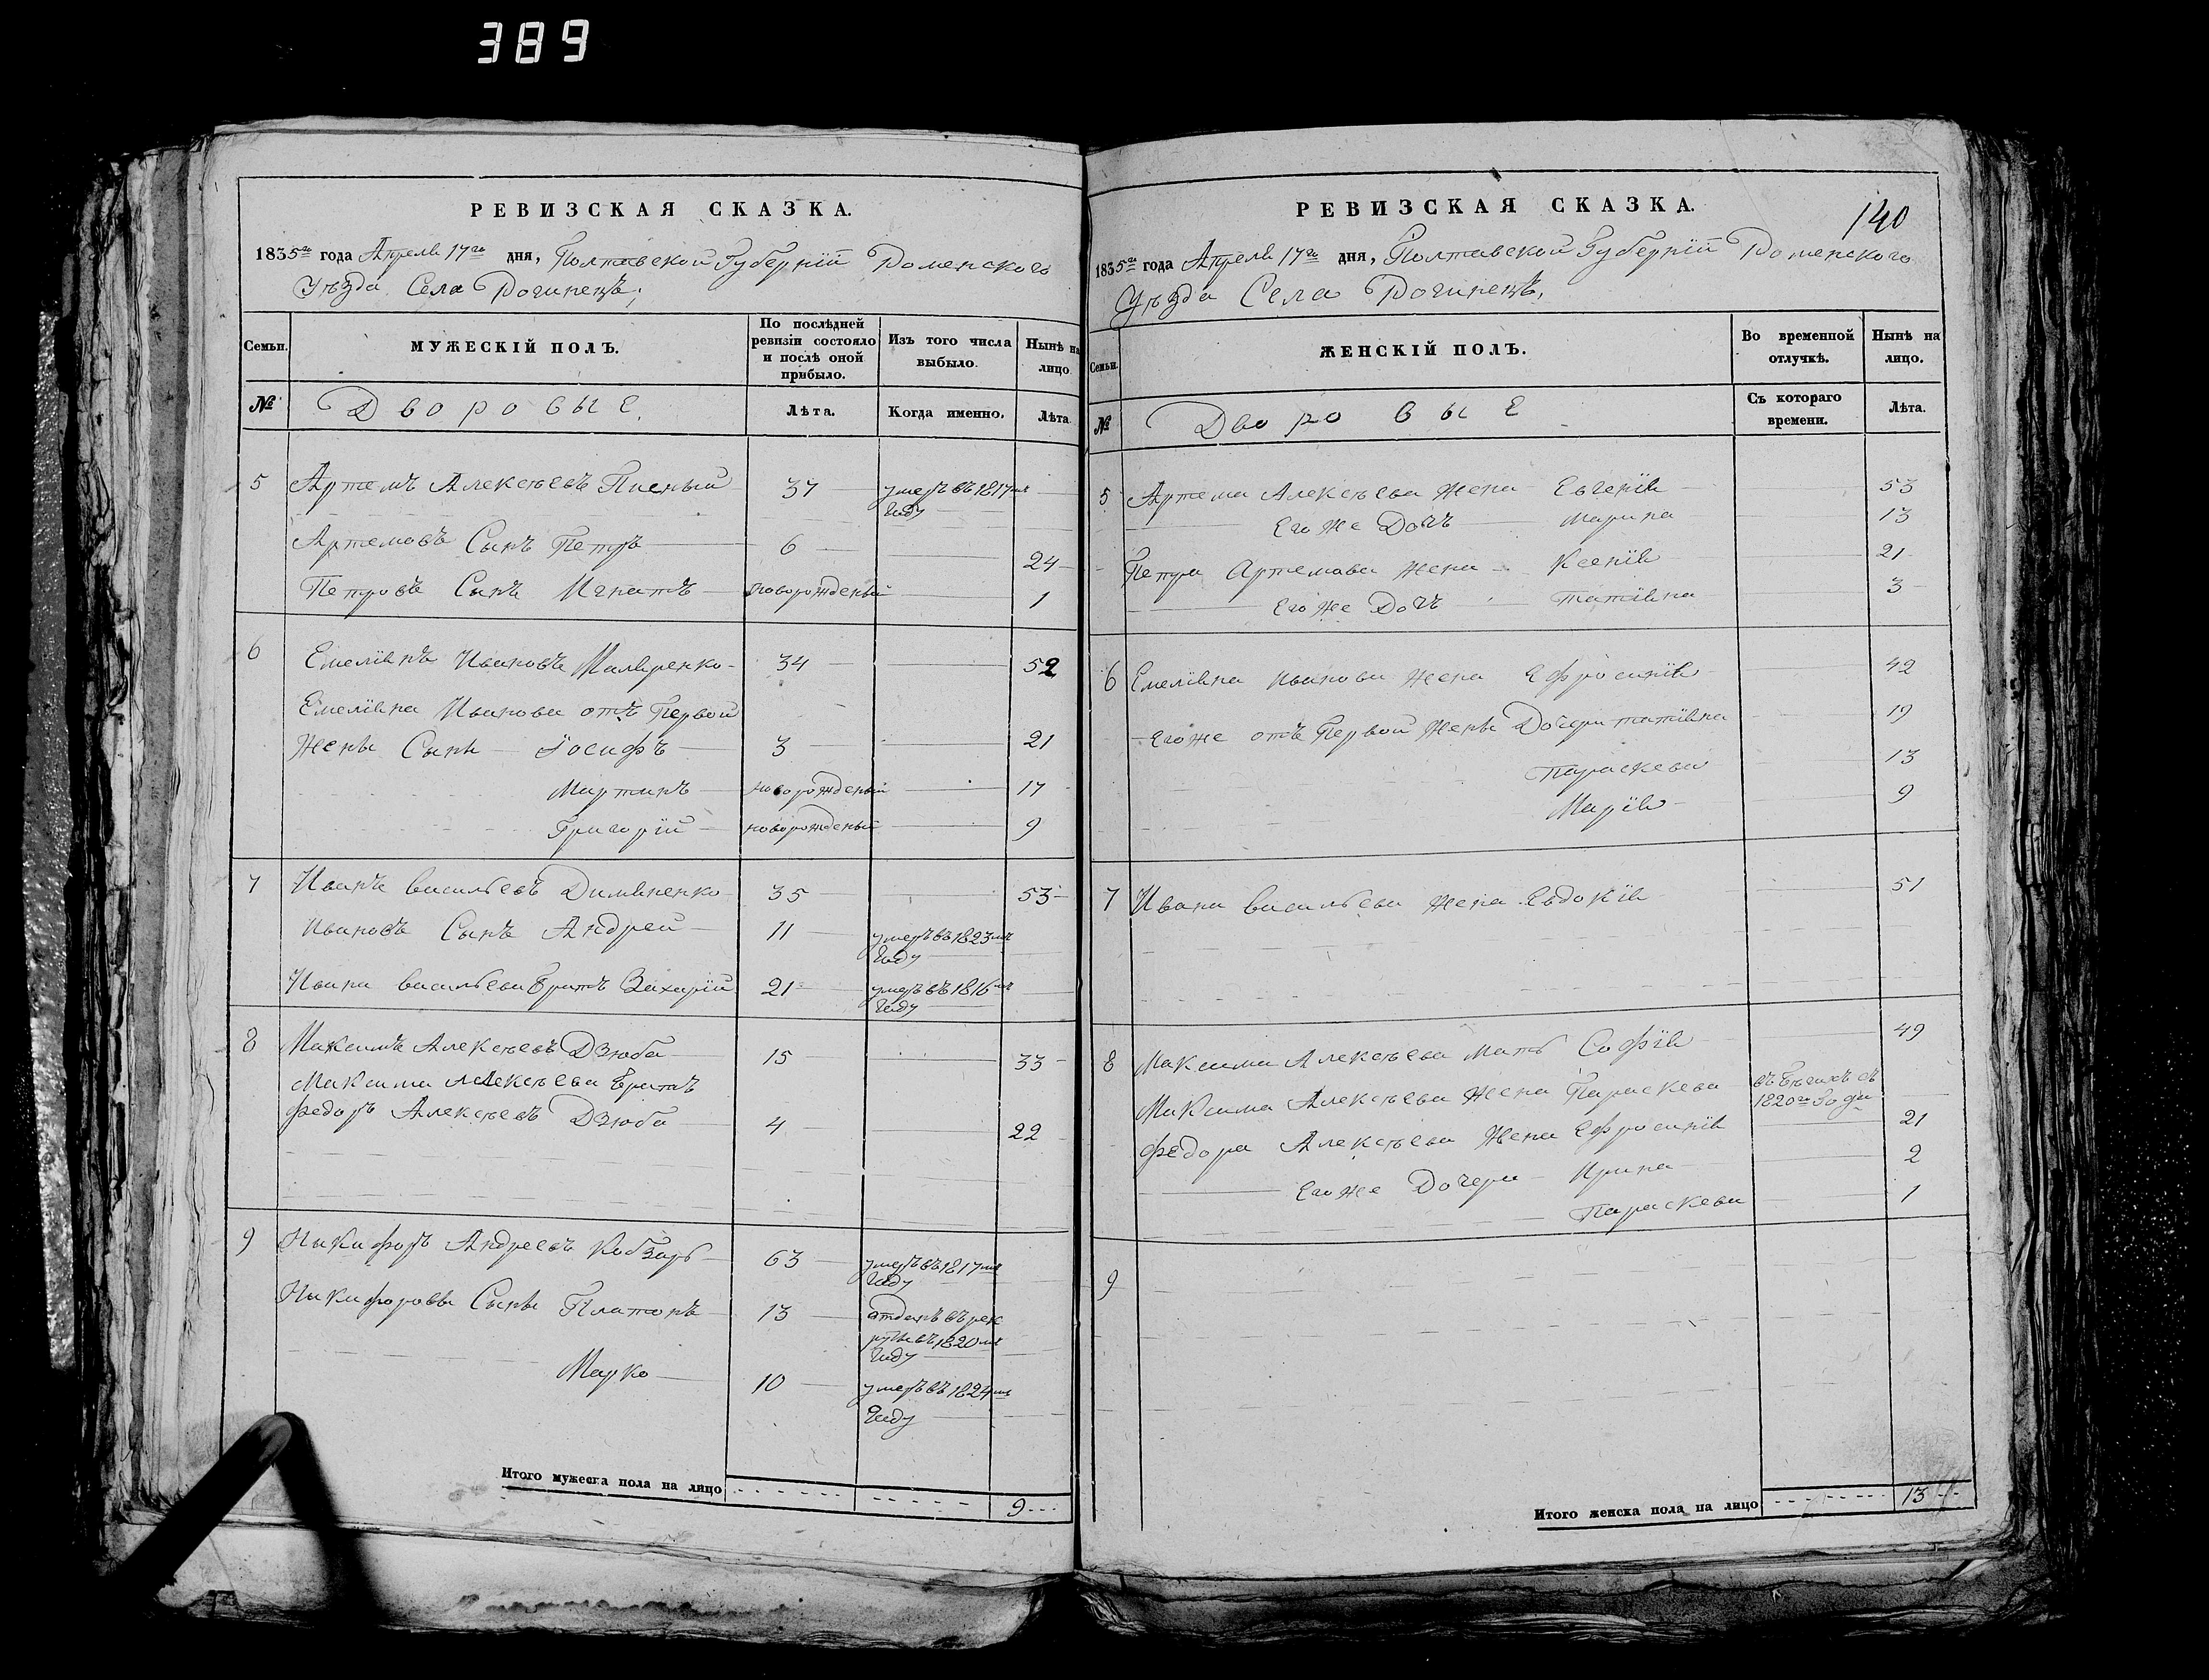 389
РЕВИЗСКАЯ СКАЗКА.
1835го года Апреля 17го дня, Полтавской Губернїй Роменского
Уѣзда Села Рогинецъ;
Семьи. МУЖЕСКІЙ ПОЛЪ. По послѣдней ревизіи состояло и послѣ оной прибыло. Изъ того числа выбыло. Нынѣ на лицо
№ Дворовые. Лѣта. Когда именно. Лѣта.
5 Артемъ Алексѣевъ 37 умеръ въ 1817мъ
Году
Артемовъ Сынъ Петръ 6 24
Петровъ Сынъ Игнатъ новорожденый 1
6 Емелїянъ Ивановъ Маляренко 34 52
Емелїяна Иванова отъ Первой
Жены Сыны Іосифъ 3 21
Мартинъ новорожденый 17
Григорїй новорожденый 9
7 Иванъ васильевъ Димяненко 35 53
Ивановъ Сынъ Андрей 11 умеръ въ 1823мъ
Году
Ивана васильева братъ Захарїй 21 умеръ въ 1816мъ
Году
8 Максимъ Алексѣевъ Дзюба 15 33
Максима Алексѣева братъ
Федоръ Алексѣевъ Дзюба 4 22
9 Никифоръ Андреевъ Кобзарь 63 умеръ въ 1817мъ
Году
Никифоровы Сыны Платонъ 13 отданъ въ рек
руты въ 1820мъ
Году
Марко 10 умеръ въ 1824мъ
Году
Итого мужеска пола на лицо 9
РЕВИЗСКАЯ СКАЗКА.
140
1835го года Апреля 17го дня, Полтавской Губернїй Роменского
Уѣзда Села Рогинецъ,
Семьи. ЖЕНСКІЙ ПОЛЪ. Во временной отлучкѣ. Нынѣ на лицо.
№ Дворовые Съ котораго времени. Лѣта.
5 Артема Алексѣева жена Евгенїя 53
Его же Дочъ Марина 13
Петра Артемова жена Ксенїя 21
Его же Дочъ татїяна 3
6 Емелїяна иванова жена Ефросинїя 42
Его же отъ Первой жены Дочери татїяна 19
Параскева 13
Марїя 9
7 Ивана васильева жена Евдокїя 51
8 Максима Алексѣева мать Софїя 49
Максима Алексѣева жена Параскева въ бѣгахъ съ
1820го Года
Федора Алексѣева жена Ефросинїя 21
Его же Дочери Ирина 2
Параскева 1
9
Итого женска пола на лицо 13